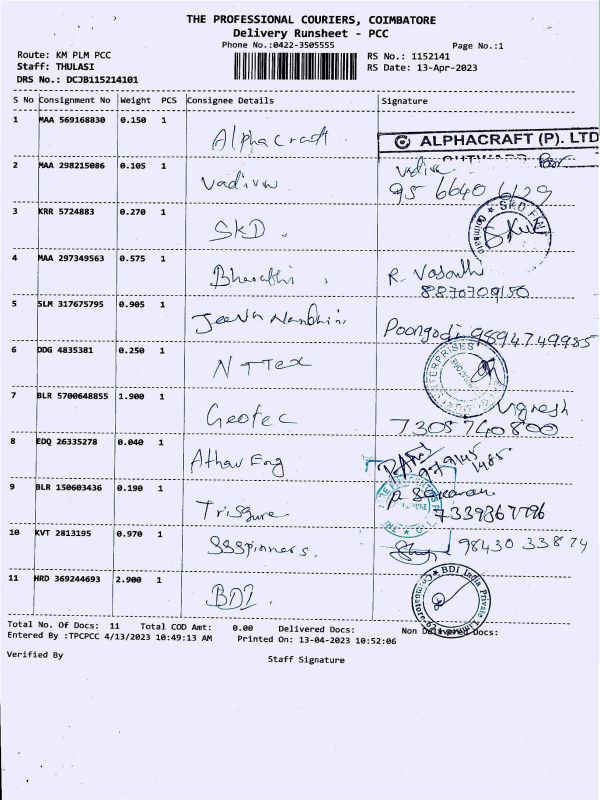 THE PROFESSIONAL COURIERS, COIMBATORE
Delivery Runsheet - PCC
Phone No.:0422-3505555
Page No.:1
Route: KM PLM PCC
RS No.: 1152141
Staff: THULASI
RS Date: 13-Apr-2023
DRS No.: DCJB115214101
S No Consignment No Weight PCS Consignee Details Signature
1 MAA 569168830 0.150 1 Alphacraft ALPHACRAFT (P). LTD
2 MAA 298215086 0.105 1 vadivu
95 6640 6129
3 KRR 5724883 0.270 1 SKD.
4 MAA 297349563 0.575 1 Bharathi R. Vasanthi
8870709150
5 SLM 317675795 0.905 1 Jeeva Nandhini Poongodi 9894749985
6 DDG 4835381 0.250 1 NTTex
7 BLR 5700648855 1.900 1 Geotec Vignesh
7305740800
8 EDQ 26335278 0.040 1 Athav Eng
9 BLR 150603436 0.190 1 TriSqure
7339367796
10 KVT 2813195 0.970 1 SSSpinners. 98430 33874
11 HRD 369244693 2.900 1 BDI. BDI India Private Limited
Total No. Of Docs: 11 Total COD Amt: 0.00 Delivered Docs: Non Delivered Docs:
Entered By :TPCPCC 4/13/2023 10:49:13 AM Printed On: 13-04-2023 10:52:06
Verified By
Staff Signature